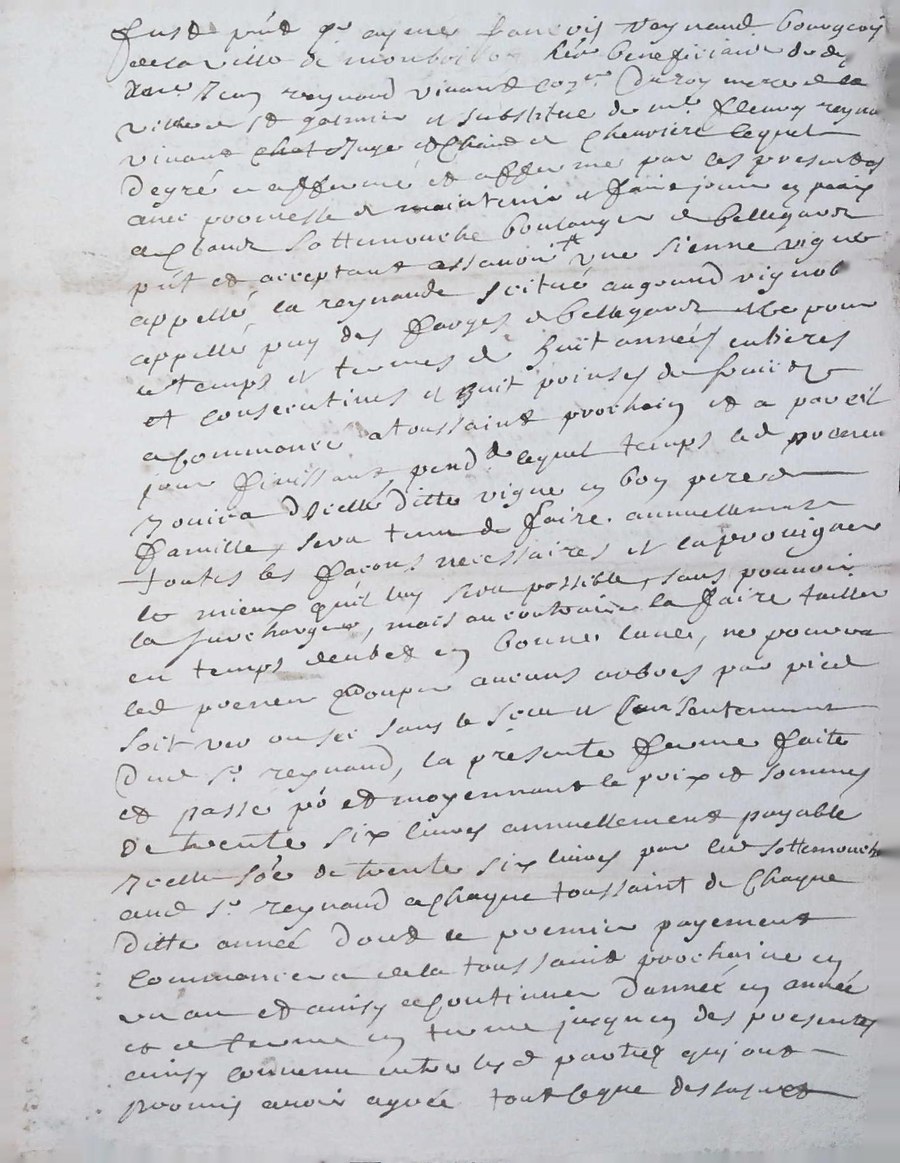 fust pñt sr aymé françois reynaud bourgeois
de la ville de montbrison hér beneficiaire de deff
Jean reynaud vivant du roy mere de la
ville de st galmier et substitue de me fleury reynaud
vivant Chat Juge et Chaid de Chevriere lequel
degré a affermé et afferme par ces presentes
avec promesse de maintenir et faire jouir en paix
a Claude Sottemouche boulanger de bellegarde
pñt et acceptant assavoir une sienne vigne
appellé la reynaude scitué au grand vignob
appellé puy des farges de bellegarde et ce pour
le temps et termes de huit années entieres
et consecutives et huit prinses de fruicts
a commancer a toussaint prochain et a pareil
jour finissant, pendt lequel temps led preneur
Jouira d'icelle ditte vigne en bon pere de
famille, sera tenu de faire annuellement
toutes les façons necessaires et la provigner
le mieux qu'il luy sera possible, sans pouvoir
la surcharger, mais au contraire la faire tailler
en temps deubt et en bonne lune, ne pourra
led preneur couper aucuns arbres par pied
soit ver ou sec sans le sceu et Consentement
dud sr reynaud, la présente ferme faite
et passé pr et moyennant le prix et sommes
de trente six livres annuellement payable
Icelle soe de trente six livres par led sottemouche
aud sr reynaud a chaque toussaint de Chaque
ditte année dont le premier payement
Commencera de la toussaint prochaine en
un an et ainsy a continuer d'année en année
et de terme en terme jusqu'en des presentes
ainsy convenu entre lesd parties qui ont
promis avoir agréé tout ce que dessus et